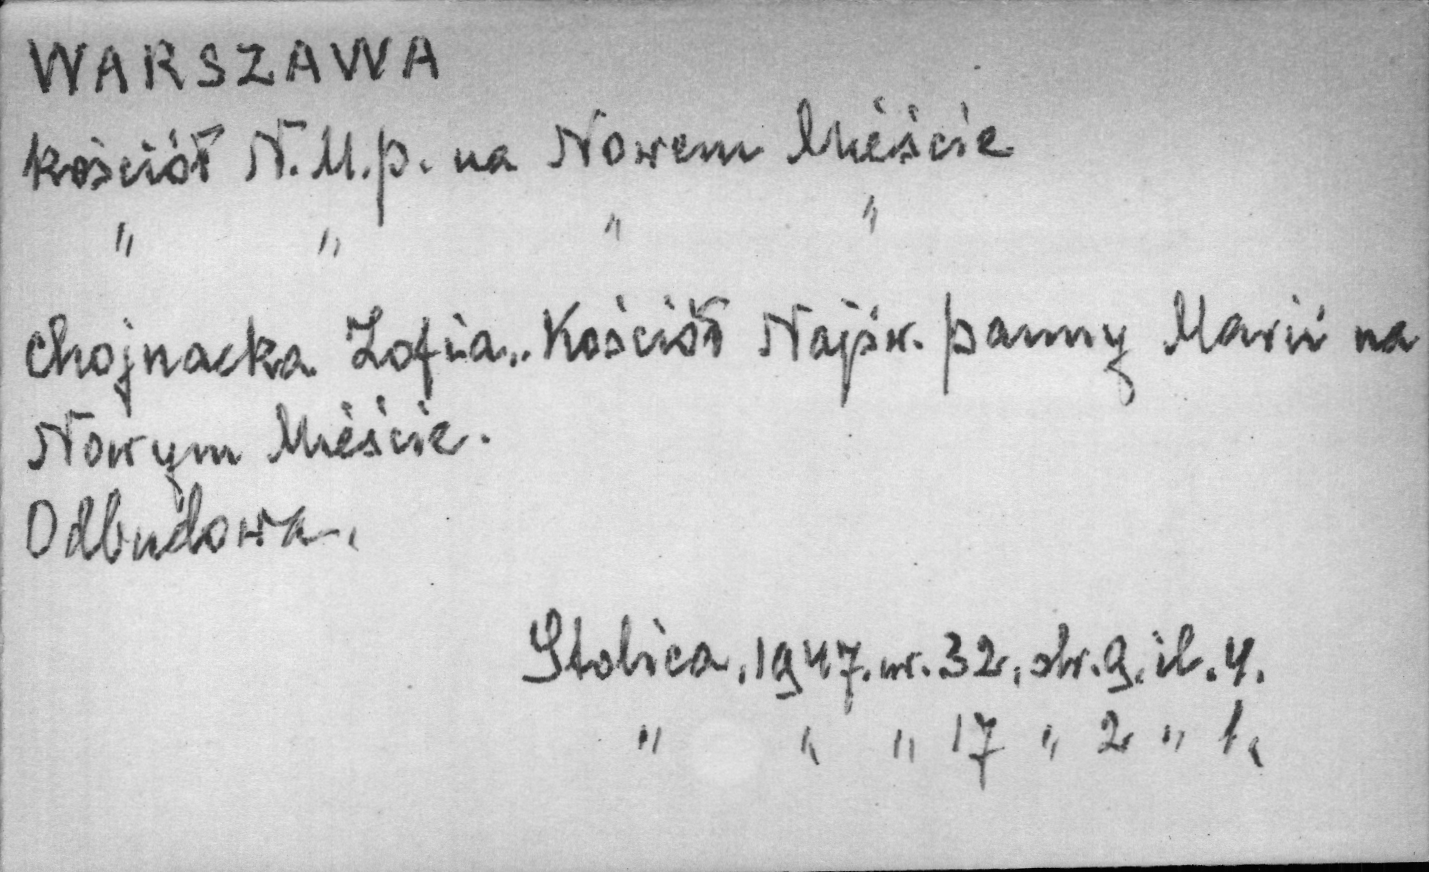 WARSZAWA
kościół N.M.p. na Nowem Mieście
" " " "
Chojnacka Zofia. Kościół Najśw. panny Marii na
Nowym Mieście.
Odbudowa.
Stolica. 1947. nr. 32. str. 9. il. 4.
" " " 17 " 2 " 1.